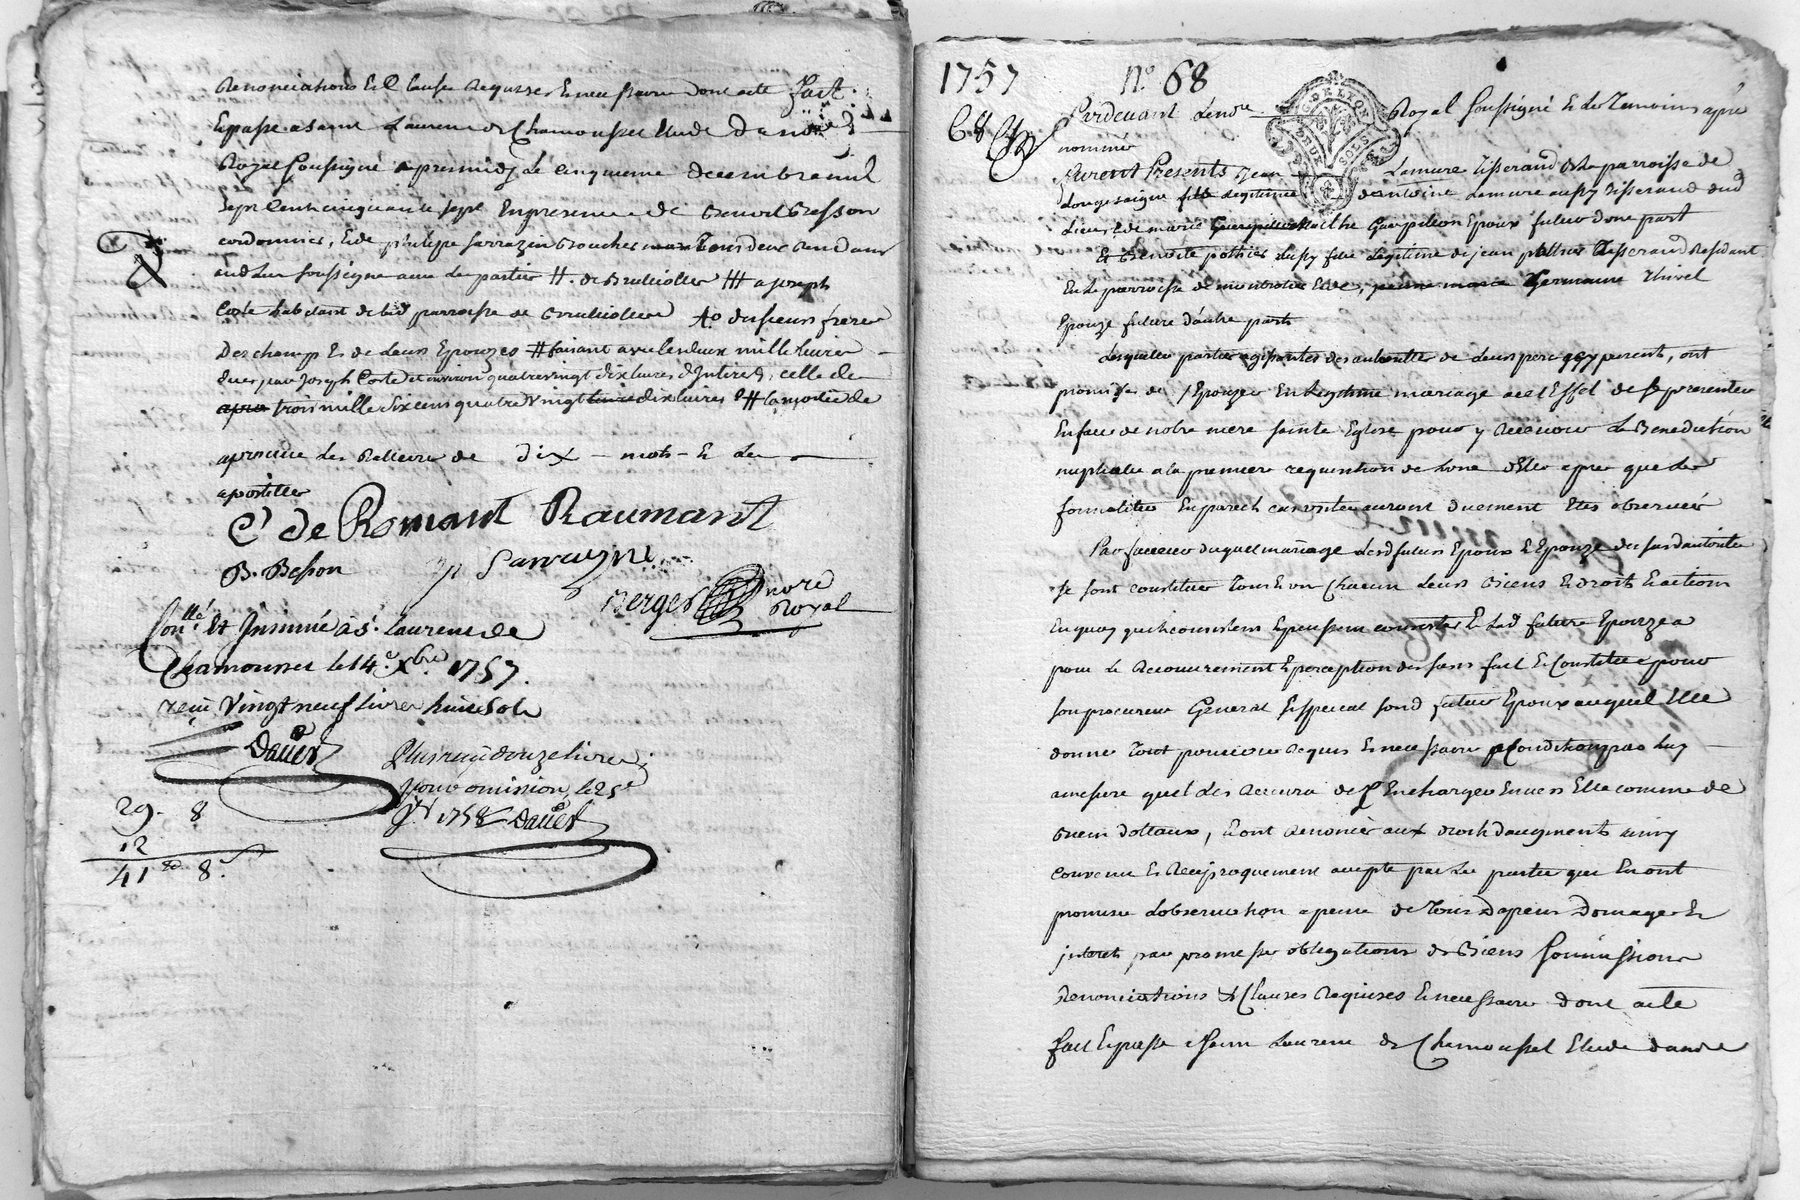 Renonciations Et Clauses Requises Et necessaire dont acte fait
Et passe a saint Laurent de Chamousset Etude dandré
Royal soussigné apremidy le cinquieme decembre mil
sept Cent cinquante sept En presence de Benoit Besson
cordonnier, Et de philipe sarrazin Boucher tous deux
aud Lieu soussigné avec les parties # de Brullioles ## a joseph
Coste habitant de lad parroisse de Brullioles des sieurs freres
Deschamp Et de Leurs Epouzes # faisant avec les deux mille livres
dues par Joseph Coste et environ quatre vingt dix livres d'Interets, celle de
trois mille dix cens quatre vingt dix livres # la moitié de
aprouvé les Ratteure de dix mots Et les
apostilles
C' de Romant Raumant
B. Besson
P Sarrazin
Berges nore
Royal
Conllé Et Insinué à St. Laurent de
Chamousset le 14e Xbre 1757.
reçu Vingt neuf livres huit sols
Dauer
Plus reçu douze livres
pour omission, le 25e
1758 Dauer
29. 8
12
41 8.
1757 No. 68
68
Pardevant Le nore Royal soussigné Et les Temoins apres
nommé
G. DE LYON
DEUX SOLS
furent Presents Jean Lamure Tisserand de la parroisse de
Longesaigne fils Legitime de antoine Lamure aussy Tisserand dud
Lieu, Et de marie Epoux futur d'une part
Et Benoite pothier aussy fille Legitime de jean pothier Tisserand Residant
En la parroisse de montrotier Et de Germaine Thivel
Epouze future d'autre part
Lesquelles parties agissantes des autorités de Leurs pere et parents, ont
promis de s'Epouzer En Legitime mariage a cet Effet de se presenter
En face de notre mere sainte Eglise pour y Recevoir La Benediction
nuptialle a la premiere requisition de Lune dElles apres que les
formalités En pareil cas usitées auront duement Etés observées
En faveur duquel mariage Lesd futurs Epoux Et Epouze des susd autorités
se sont constitués Tous Et un Chacun Leurs Biens Et droits Et actions
En quoy qu'ils consistent Et puissent consister Et Lad future Epouze a
pour Le Recouvrement Et perception des siens fait Et Constitué pour
son procureur General Et special sond futur Epoux auquel Elle
donne Tout pouvoir Requis Et necessaire a Condition que Luy
amesure quel les Recevra de s'En charger Envers Elle comme de
Biens dottaux, Et ont Renoncé aux droits daugments ainsy
convenu Et Reciproquement accepté par Les parties qui En ont
promis L'observation a peine de Tous Depens Domages Et
interets par promesses obligations de Biens soumissions
Renonciations Et Clauses Requises Et necessaires dont acte
fait Et passé a saint Laurent de Chamousset Etude dandré